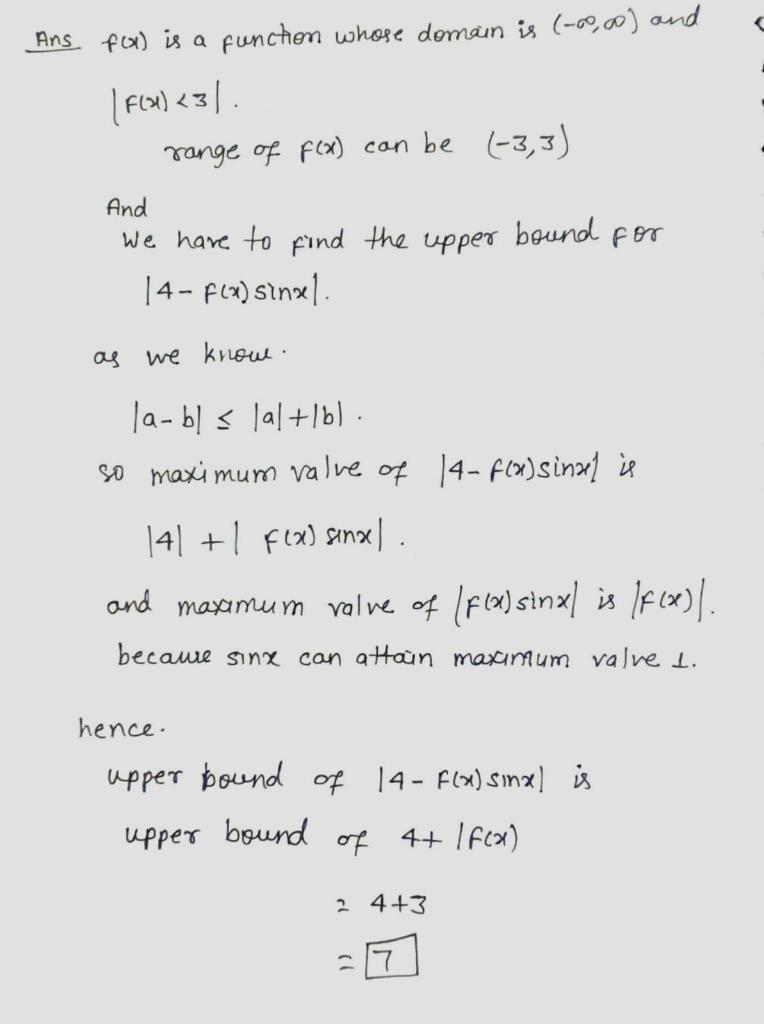 Ans f(x) is a function whose domain is (-∞,∞) and
|f(x) <3|.
range of f(x) can be (-3,3)
And
We have to find the upper bound for
|4- f(x) sinx|.
as we know.
|a-b| ≤ |a|+|b|.
so maximum valve of |4- f(x)sinx| is
|4| +| f(x) sinx|.
and maximum valve of |f(x)sinx| is |f(x)|.
because sinx can attain maximum valve 1.
hence.
upper bound of |4- f(x) sinx| is
upper bound of 4+ |f(x)
= 4+3
= 7